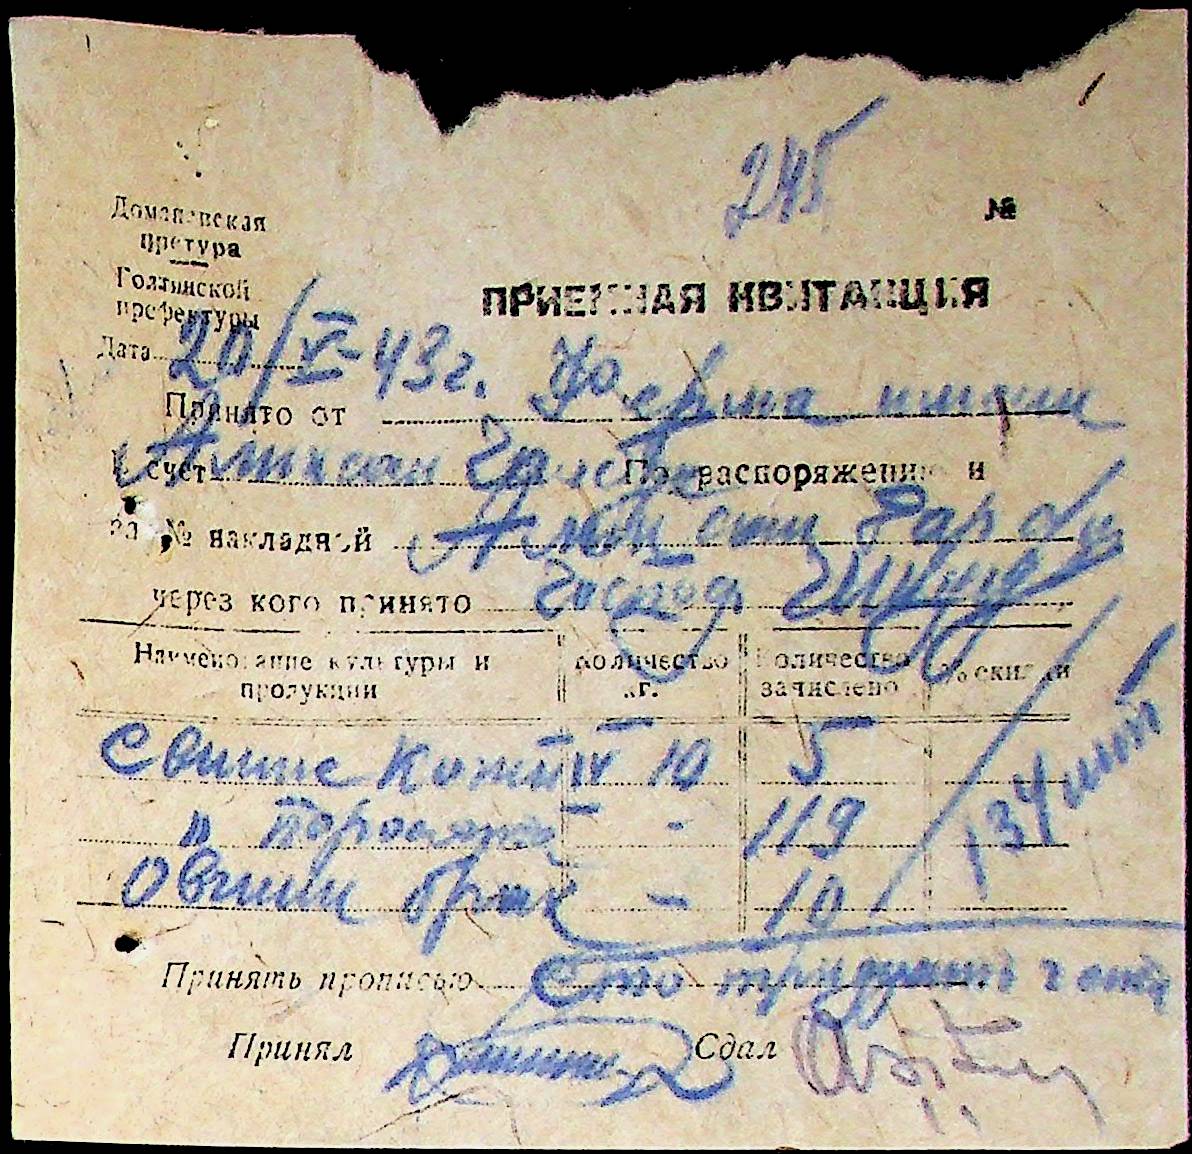 245 №
Доманевская
претура
Голтянской
префектуры
ПРИЕМНАЯ КВИТАНЦИЯ
Дата 20/V-43г.
Принято от Ферма имени
В счет По распоряжению и
За № накладной
через кого принято Господ.
Наименование культуры и продукции Количество кг. Количество зачислено % скидки
Свиние Кожи IV 10 5
" поросячи - 119
Овчин брак - 10
134 шт
Принять прописью Сто тридцать
Принял Сдал